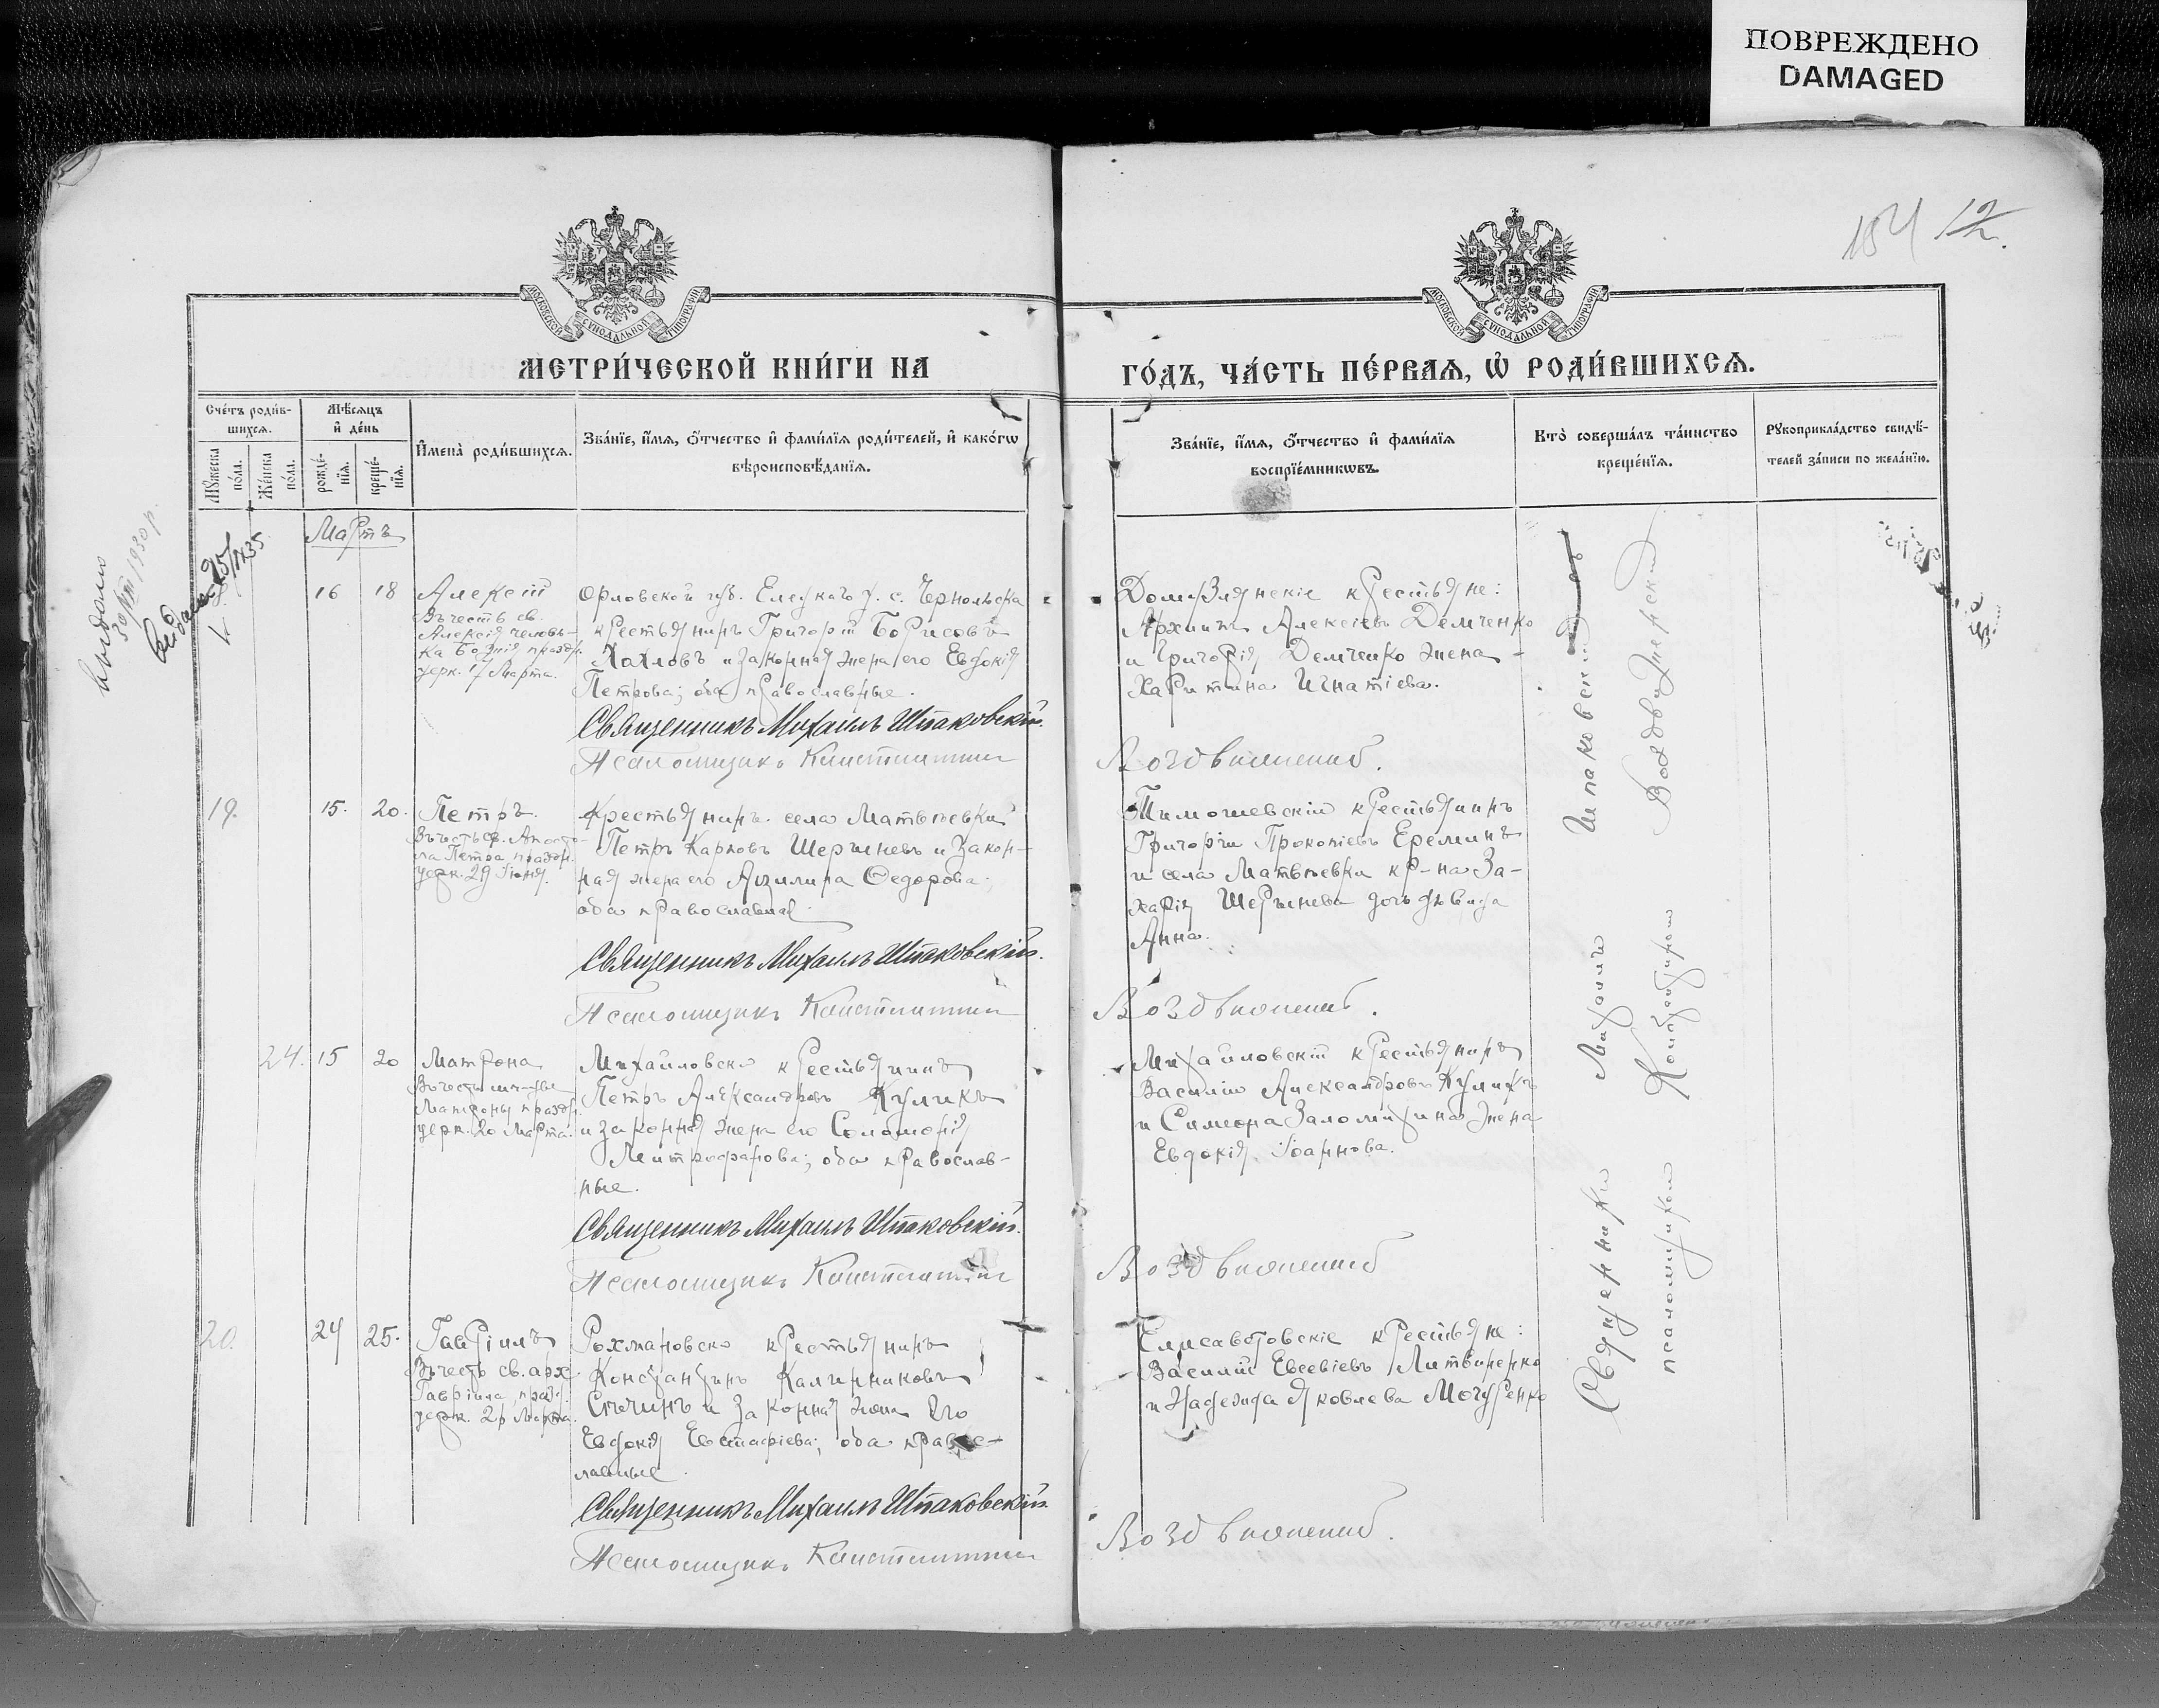 ПОВРЕЖДЕНО
DAMAGED
154 12
МОСКОВСКОЙ СѴНОДАЛЬНОЙ ТИПОГРАФІИ
МОСКОВСКОЙ СѴНОДАЛЬНОЙ ТИПОГРАФІИ
МЕТРИ́ЧЕСКОЙ КНИ́ГИ НА
ГО́ДЪ, ЧА́СТЬ ПЕ́РВАЯ, Ѡ҆ РОДИ́ВШИХСЯ.
Сче́тъ роди́в-
шихсѧ.
Мꙋжеска
по́ла.
Же́нска
по́ла.
Мѣ́сѧцъ
и҆ де́нь
рожде́-
нїѧ.
креще́-
нїѧ.
И҆мена̀ роди́вшихсѧ.
Зва́нїе, и҆́мѧ, ѻ҆́тчество и҆ фами́лїѧ роди́телей, и҆ како́гѡ
вѣроисповѣ́данїѧ.
Зва́нїе, и҆́мѧ, ѻ҆́тчество и҆ фами́лїѧ
воспрїе́мникѡвъ.
Кто̀ соверша́лъ та́инство
креще́нїѧ.
Рꙋкоприкла́дство свидѣ́-
телей за́писи по жела́нїю.
выдано
1930 р.
Мартъ
16 18 Алексій
Въ честь св.
Алексія человѣ-
ка Божія, праздн.
церк. 17 Марта.
Орловской губ. Елецкаго у. с. Чернольска
крестьянинъ Григорій Борисовъ
Хохловъ и законная жена его Евдокія
Петрова; оба православные.
Священникъ Михаилъ Шпаковскій.
Псаломщикъ Константинъ
Домузлянскіе крестьяне:
Архипъ Алексіевъ Демченко
и Григорія Демченко жена
Харитина Игнатіева.
Воздвиженскій.
19. 15. 20. Петръ.
Въ честь св. Апосто-
ла Петра, праздн.
церк. 29 Іюня.
Крестьянинъ села Матвѣевки
Петръ Карповъ Шершневъ и закон-
ная жена его Акилина Ѳедорова;
оба православные
Священникъ Михаилъ Шпаковскій.
Псаломщикъ Константинъ
Тимошевскій крестьянинъ
Григорій Прокопіевъ Ереминъ
и села Матвѣевки кр-на За-
харія Шершнева дочь дѣвица
Анна.
Воздвиженскій.
24. 15 20 Матрона
Въ честь
Матроны, праздн.
церк. 20 Марта.
Михайловскій крестьянинъ
Петръ Александровъ Куликъ
и законная жена его Соломонія
Митрофанова; оба православ-
ные.
Священникъ Михаилъ Шпаковскій.
Псаломщикъ Константинъ
Михайловскій крестьянинъ
Василій Александровъ Куликъ
и Симеона Заломихина жена
Евдокія Іоаннова.
Воздвиженскій
20. 24 25. Гавріилъ
Въ честь св. арх.
Гавріила, праздн.
церк. 26 Марта.
Рохмановскій крестьянинъ
Константинъ Калинниковъ
и законная жена его
Евдокія Евстафіева; оба право-
славные.
Священникъ Михаилъ Шпаковскій.
Псаломщикъ Константинъ
Елисаветовскіе крестьяне:
Василій Евсевіевъ Литвиненко
и Надежда Яковлева Мочуренко
Воздвиженскій.
Священникъ Михаилъ Шпаковскій
псаломщикомъ Константиномъ Воздвиженскимъ